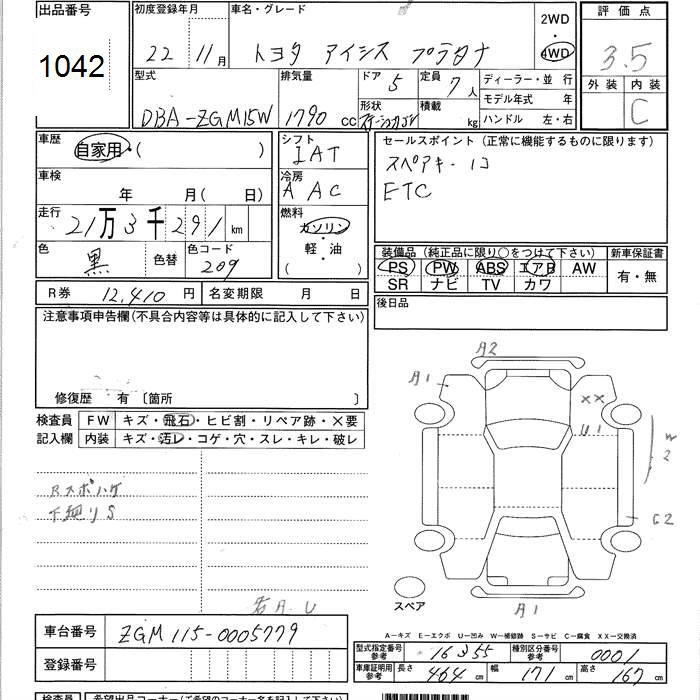 出品番号
1042
初度登録年月
22 11月
車名・グレード
トヨタ アイシス プラタナ
2WD
4WD
評価点
3.5
外装 内装
C
型式
DBA-ZGM15W
排気量
1790 cc
ドア
5
形状
定員
7人
積載
kg
ディーラー・並 行
モデル年式 年
ハンドル 左・右
車歴
自家用・( )
車検
年 月( 日)
走行
21万3千291km
色
黒
色替
色コード
209
シフト
IAT
冷房
AAC
燃料
ガソリン
・
軽・油
( )
セールスポイント(正常に機能するものに限ります)
スペアキー1コ
ETC
装備品(純正品に限り○をつけて下さい)
PS PW ABS エアB AW
SR ナビ TV カワ
新車保証書
有・無
R券 12,410 円
名変期限 月 日
後日品
注意事項申告欄(不具合内容等は具体的に記入して下さい)
修復歴 有 〔箇所 〕
検査員
記入欄
FW キズ・飛石・ヒビ割・リペア跡・×要
内装 キズ・汚レ・コゲ・穴・スレ・キレ・破レ
Rスポハゲ
下廻りS
若A.U
A2
A1
XX
U1
W2
G2
A1
スペア
A-キズ E-エクボ U-凹み W-補修跡 S-サビ C-腐食 XX-交換済
車台番号 ZGM115-0005779
登録番号
型式指定番号
参考
16355
種別区分番号
参考
0001
車庫証明用
参考
長さ 464cm 幅 171cm 高さ 167cm
検査員
希望出品コーナー(ご希望のコーナー名を記入下さい)